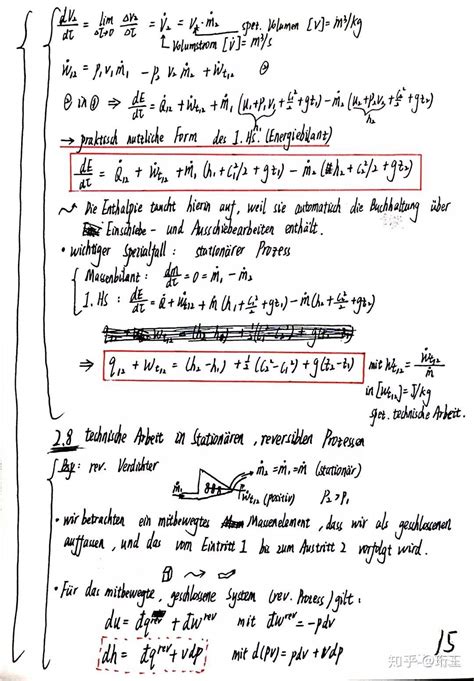 dV₂/dτ = lim Δτ→0 ΔV₂/Δτ = V̇₂ = v₂·ṁ₂ spez. Volumen [v] = m³/kg
Volumstrom [V̇] = m³/s
Ẇ₁₂ = p₁v₁ṁ₁ - p₂v₂ṁ₂ + Ẇt₁₂ ②
② in ① ⇒ dE/dτ = Q̇₁₂ + Ẇt₁₂ + ṁ₁(u₁+p₁v₁+c₁²/2+gz₁) - ṁ₂(u₂+p₂v₂+c₂²/2+gz₂)
h₁ h₂
→ praktisch nützliche Form des 1. HS. (Energiebilanz)
dE/dτ = Q̇₁₂ + Ẇt₁₂ + ṁ₁(h₁+c₁²/2+gz₁) - ṁ₂(h₂+c₂²/2+gz₂)
Die Enthalpie taucht hierin auf, weil sie automatisch die Buchhaltung über
Einschiebe- und Ausschiebearbeiten enthält.
• wichtiger Spezialfall: stationärer Prozess
Massenbilanz: dm/dτ = 0 = ṁ₁ - ṁ₂
1. HS: dE/dτ = Q̇ + Ẇt₁₂ + ṁ(h₁+c₁²/2+gz₁) - ṁ(h₂+c₂²/2+gz₂)
⇒ q₁₂ + wt₁₂ = (h₂-h₁) + ½(c₂²-c₁²) + g(z₂-z₁) mit wt₁₂ = Ẇt₁₂/ṁ
in [wt₁₂] = J/kg
technische Arbeit.
2.8 technische Arbeit in stationären, reversiblen Prozessen
Bsp: rev. Verdichter
ṁ₁ ṁ₂ = ṁ₁ = ṁ (stationär)
Wt₁₂ (positiv) P₂ > P₁
• wir betrachten ein mitbewegtes Massenelement, dass wir als geschlossenen
auffassen, und das vom Eintritt 1 bis zum Austritt 2 verfolgt wird.
• Für das mitbewegte, geschlossene System (rev. Prozess) gilt:
du = đq^rev + đw^rev mit đw^rev = -pdv
dh = đq^rev + vdp mit d(pv) = pdv + vdp
15
知乎